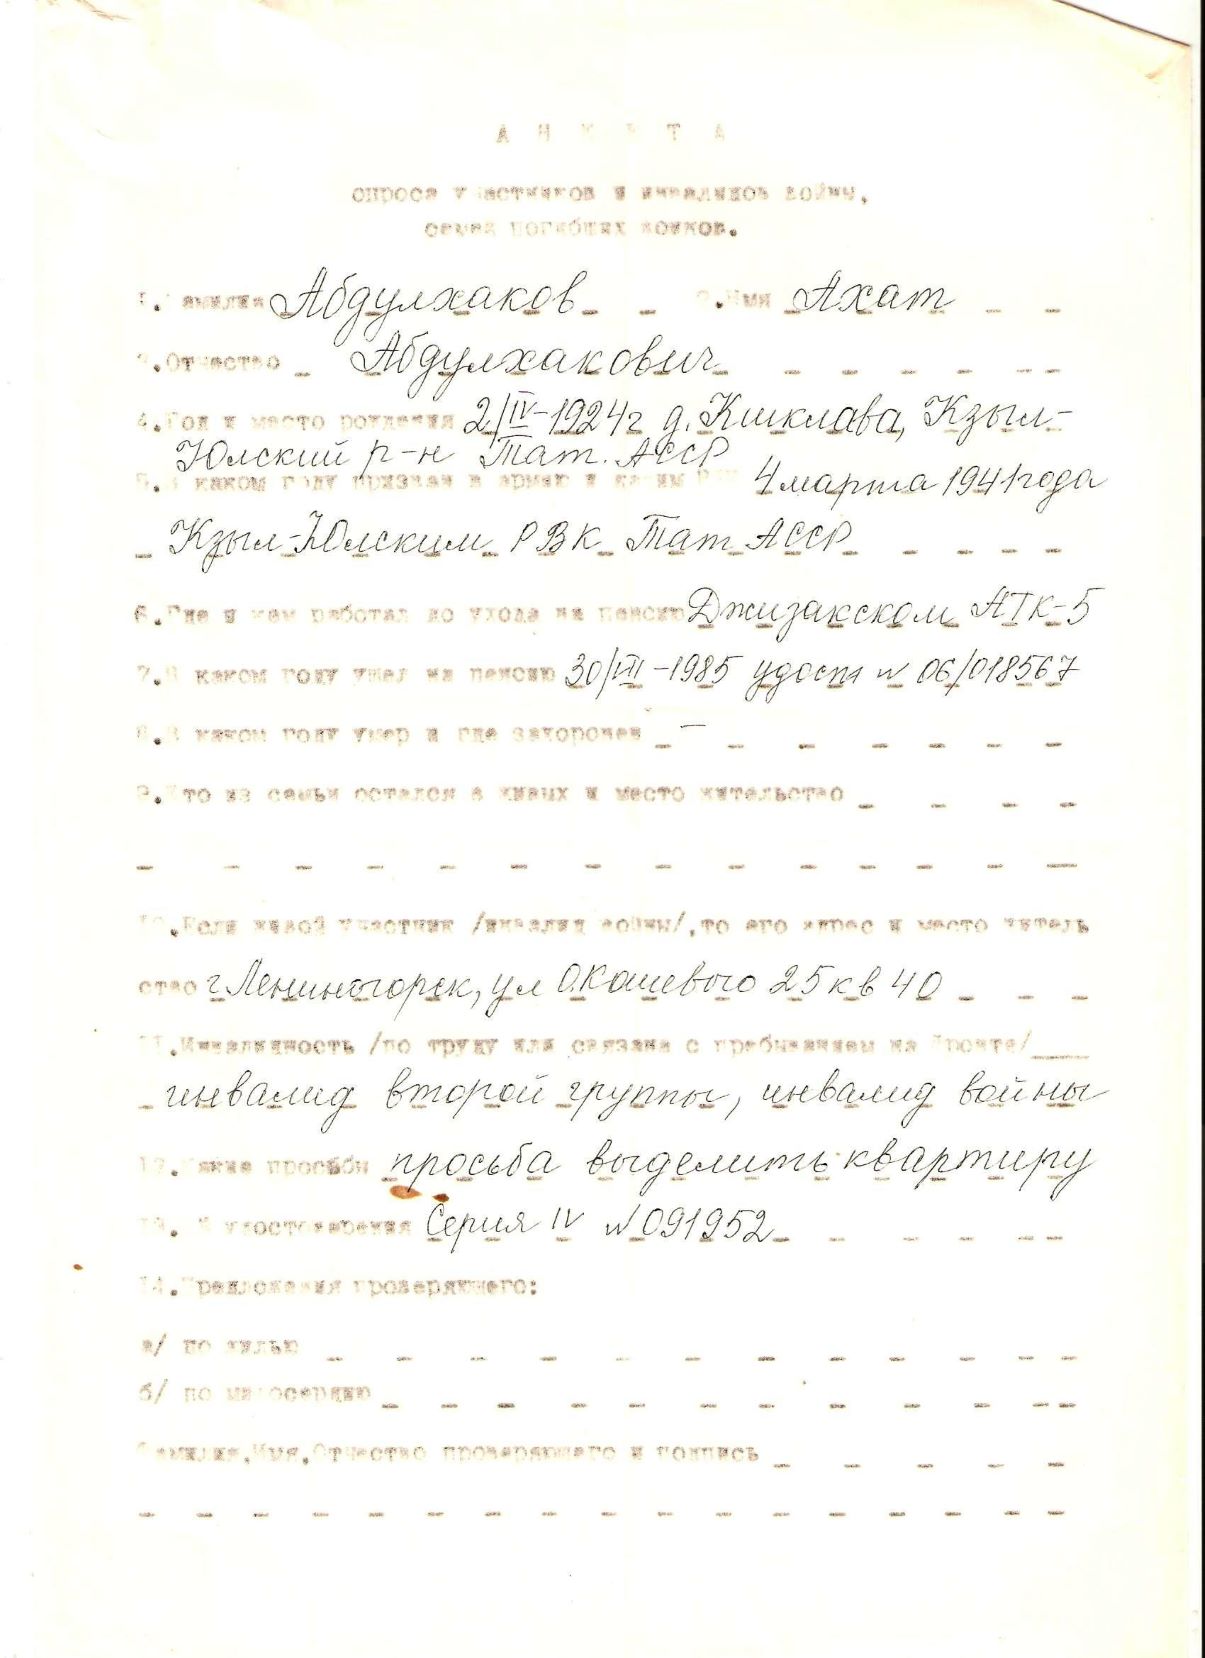 АНКЕТА
опроса участников и инвалидов войны,
семей погибших воинов.
1.Фамилия Абдулхаков 2.Имя Ахат
3.Отчество Абдулхакович
4.Год и место рождения 2/IV-1924г д. Кшклава, Кзыл-
Юлский р-н Тат. АССР
5.В каком году призван в армию и каким РВК 4 марта 1941 года
Кзыл-Юлским РВК Тат АССР
6.Где и кем работал до ухода на пенсию Джизакском АТК-5
7.В каком году ушел на пенсию 30/III-1985 удост № 06/018567
8.В каком году умер и где захоронен –
9.Кто из семьи остался в живых и место жительство
10.Если живой участник /инвалид войны/,то его адрес и место житель
ство г Лениногорск, ул О.Кошевого 25 кв 40
11.Инвалидность /по труду или связана с пребыванием на фронте/
инвалид второй группы, инвалид войны
12.Какие просьбы просьба выделить квартиру
13. № удостоверения Серия IV № 091952
14.Предложения проверяющего:
а/ по жилью
б/ по матосерию
Фамилия,Имя,Отчество проверяющего и подпись